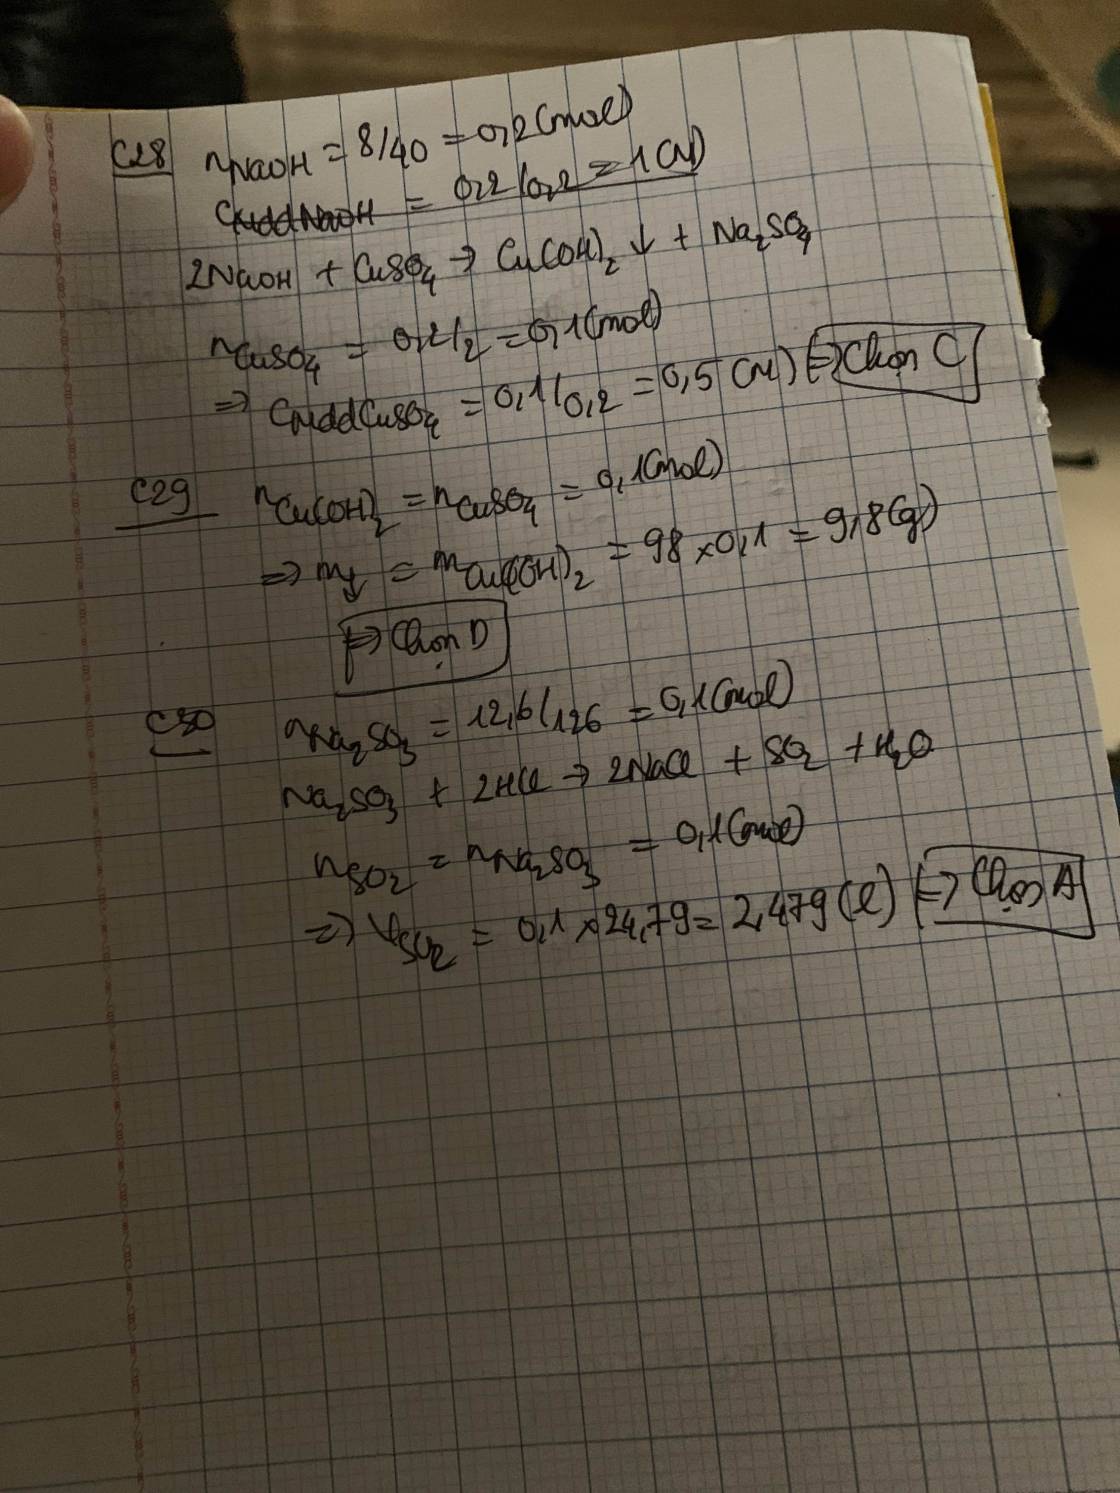 C28 nNaOH = 8/40 = 0,2 (mol)
CMddNaOH = 0,2/0,2 = 1 (M)
2NaOH + CuSO₄ → Cu(OH)₂ ↓ + Na₂SO₄
nCuSO₄ = 0,2/2 = 0,1 (mol)
=> CMddCuSO₄ = 0,1/0,2 = 0,5 (M) => Chọn C
C29 nCu(OH)₂ = nCuSO₄ = 0,1 (mol)
=> m↓ = mCu(OH)₂ = 98 x 0,1 = 9,8 (g)
=> Chọn D
C30 nNa₂SO₃ = 12,6/126 = 0,1 (mol)
Na₂SO₃ + 2HCl → 2NaCl + SO₂ + H₂O
nSO₂ = nNa₂SO₃ = 0,1 (mol)
=> VSO₂ = 0,1 x 24,79 = 2,479 (l) => Chọn A